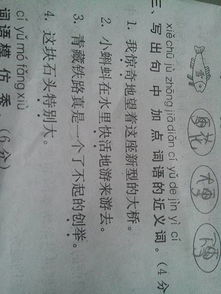 xiě chū jù zhōng jiā diǎn cí yǔ de jìn yì cí
三、写出句中加点词语的近义词。(4分
1. 我惊奇地望着这座新型的大桥。
2. 小蝌蚪在水里快活地游来游去。
3. 青藏铁路真是一个了不起的创举。
4. 这块石头特别大。
cí yǔ mó fǎng xiù
词语模仿秀。(6分)